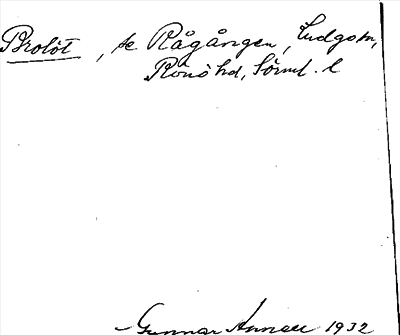 Brolöt, se Rågången, Ludgo sn,
Rönö hd, Sörml. l
Gunnar Annell 1932